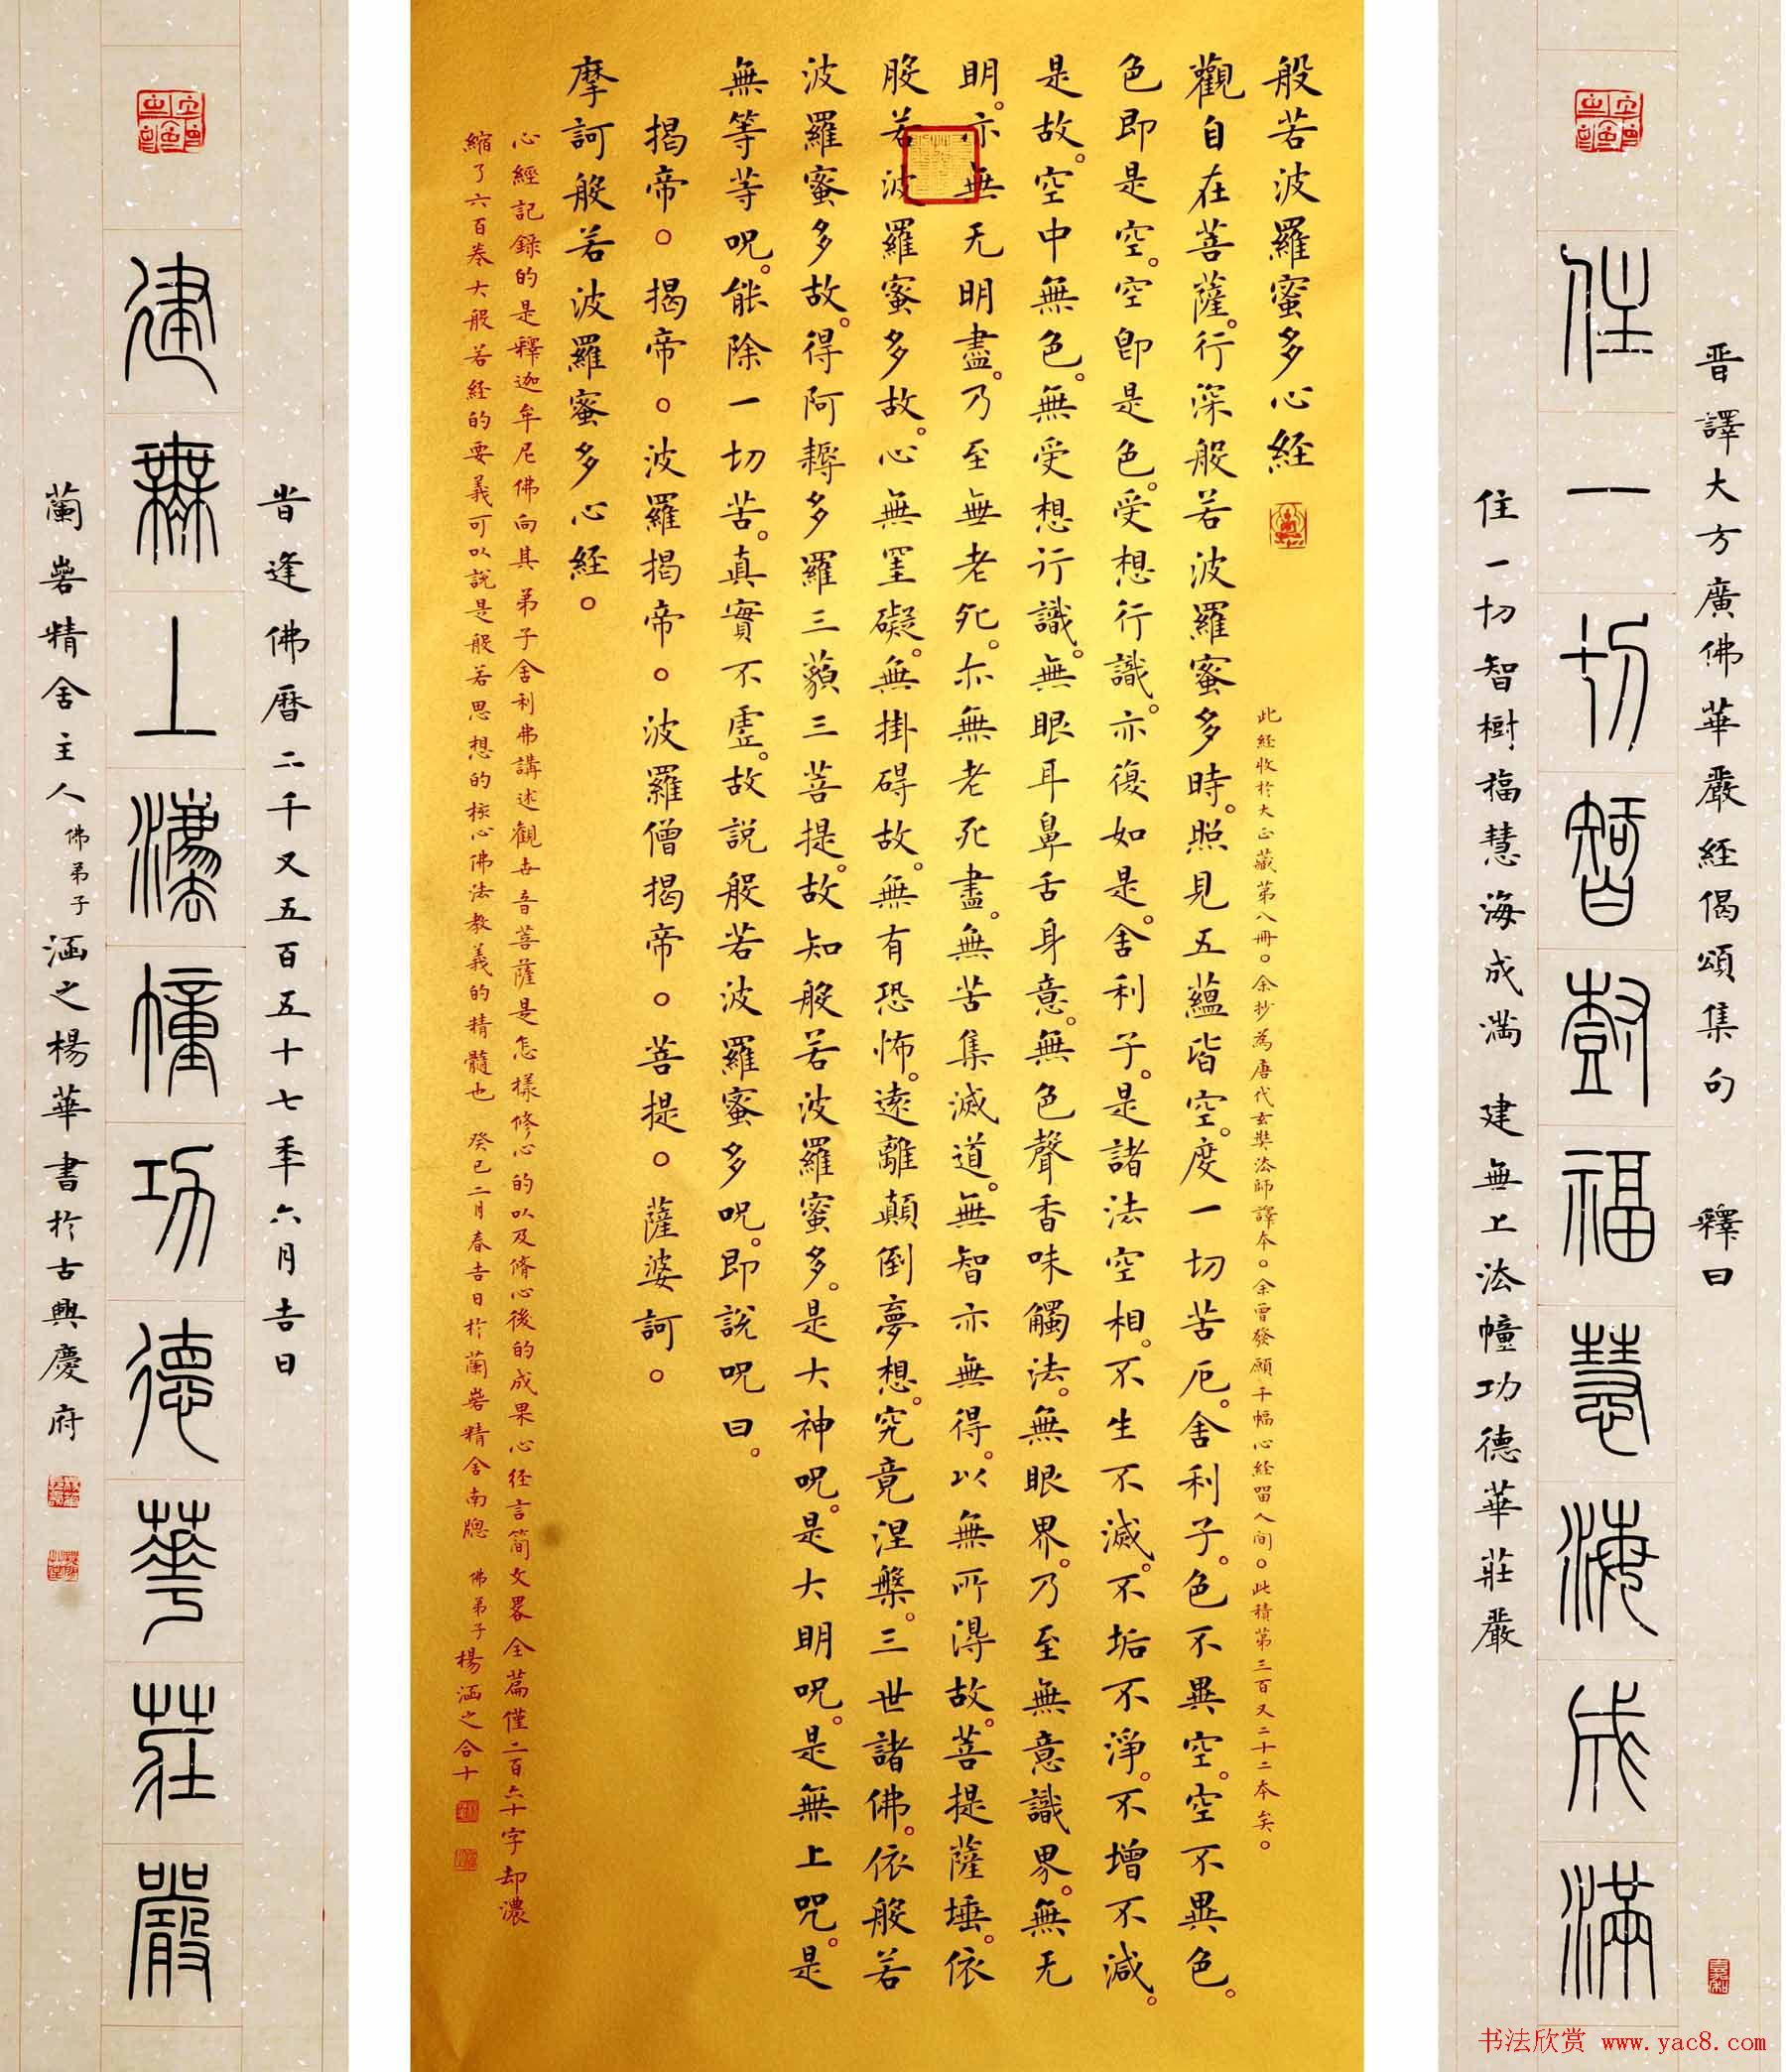 晋譯大方廣佛華嚴経偈頌集句 釋曰
住一切智樹福慧海成满
住一切智樹福慧海成满 建無上法幢功德華莊嚴
般若波羅蜜多心経
此経收扵大正藏第八冊。余抄為唐代玄奘法師譯本。余曾發願千幅心経畱人间。此積第三百又二十二本矣。
觀自在菩薩。行深般若波羅蜜多時。照見五蘊皆空。度一切苦厄。舍利子。色不異空。空不異色。
色即是空。空即是色。受想行識。亦復如是。舍利子。是諸法空相。不生不滅。不垢不淨。不增不減。
是故。空中無色。無受想行識。無眼耳鼻舌身意。無色聲香味觸法。無眼界。乃至無意識界。無无
明。亦無无明盡。乃至無老死。亦無老死盡。無苦集滅道。無智亦無得。以無所得故。菩提薩埵。依
般若波羅蜜多故。心無罣礙。無掛碍故。無有恐怖。遠離顛倒夢想。究竟涅槃。三世諸佛。依般若
波羅蜜多故。得阿耨多羅三藐三菩提。故知般若波羅蜜多。是大神呪。是大明呪。是無上呪。是
無等等呪。能除一切苦。真實不虛。故説般若波羅蜜多呪。即説呪曰。
揭帝。揭帝。波羅揭帝。波羅僧揭帝。菩提。薩婆訶。
摩訶般若波羅蜜多心経。
心經記録的是釋迦牟尼佛向其弟子舍利弗講述觀世音菩薩是怎樣修心的以及脩心後的成果心经言简文畧全篇僅二百六十字却濃
縮了六百卷大般若经的要義可以說是般若思想的核心佛法教義的精髓也 癸巳二月春吉日扵蘭喾精舍南牕 佛弟子楊涵之合十
昔逢佛曆二千又五百五十七年六月吉日
建無上灋幢功德華莊嚴
蘭喾精舍主人佛弟子涵之楊華書扵古興慶府
书法欣赏 www.yac8.com